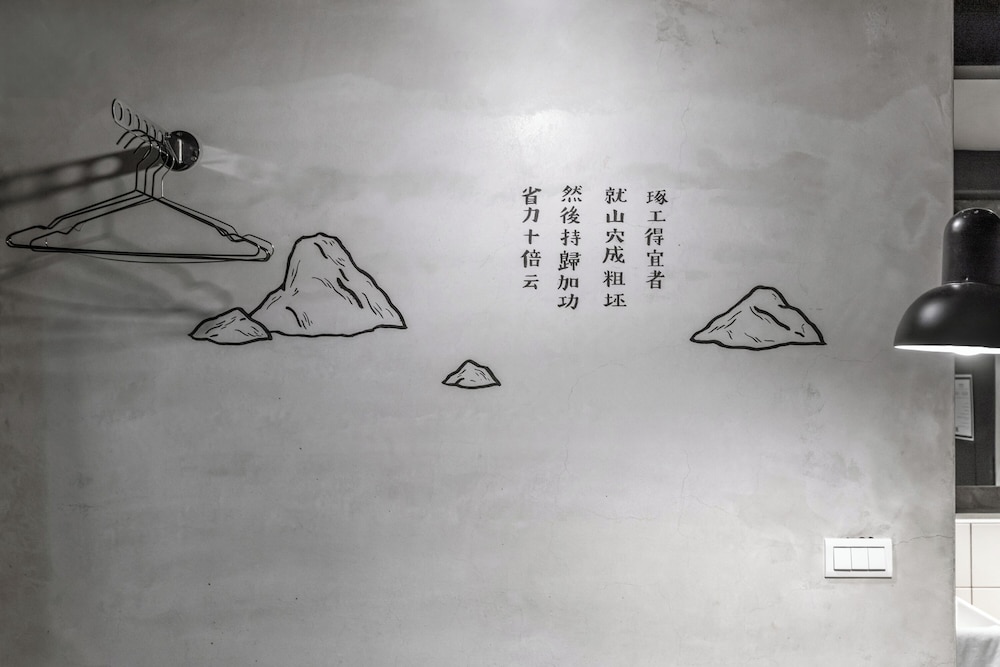 琢工得宜者
就山穴成粗坯
然後持歸加功
省力十倍云